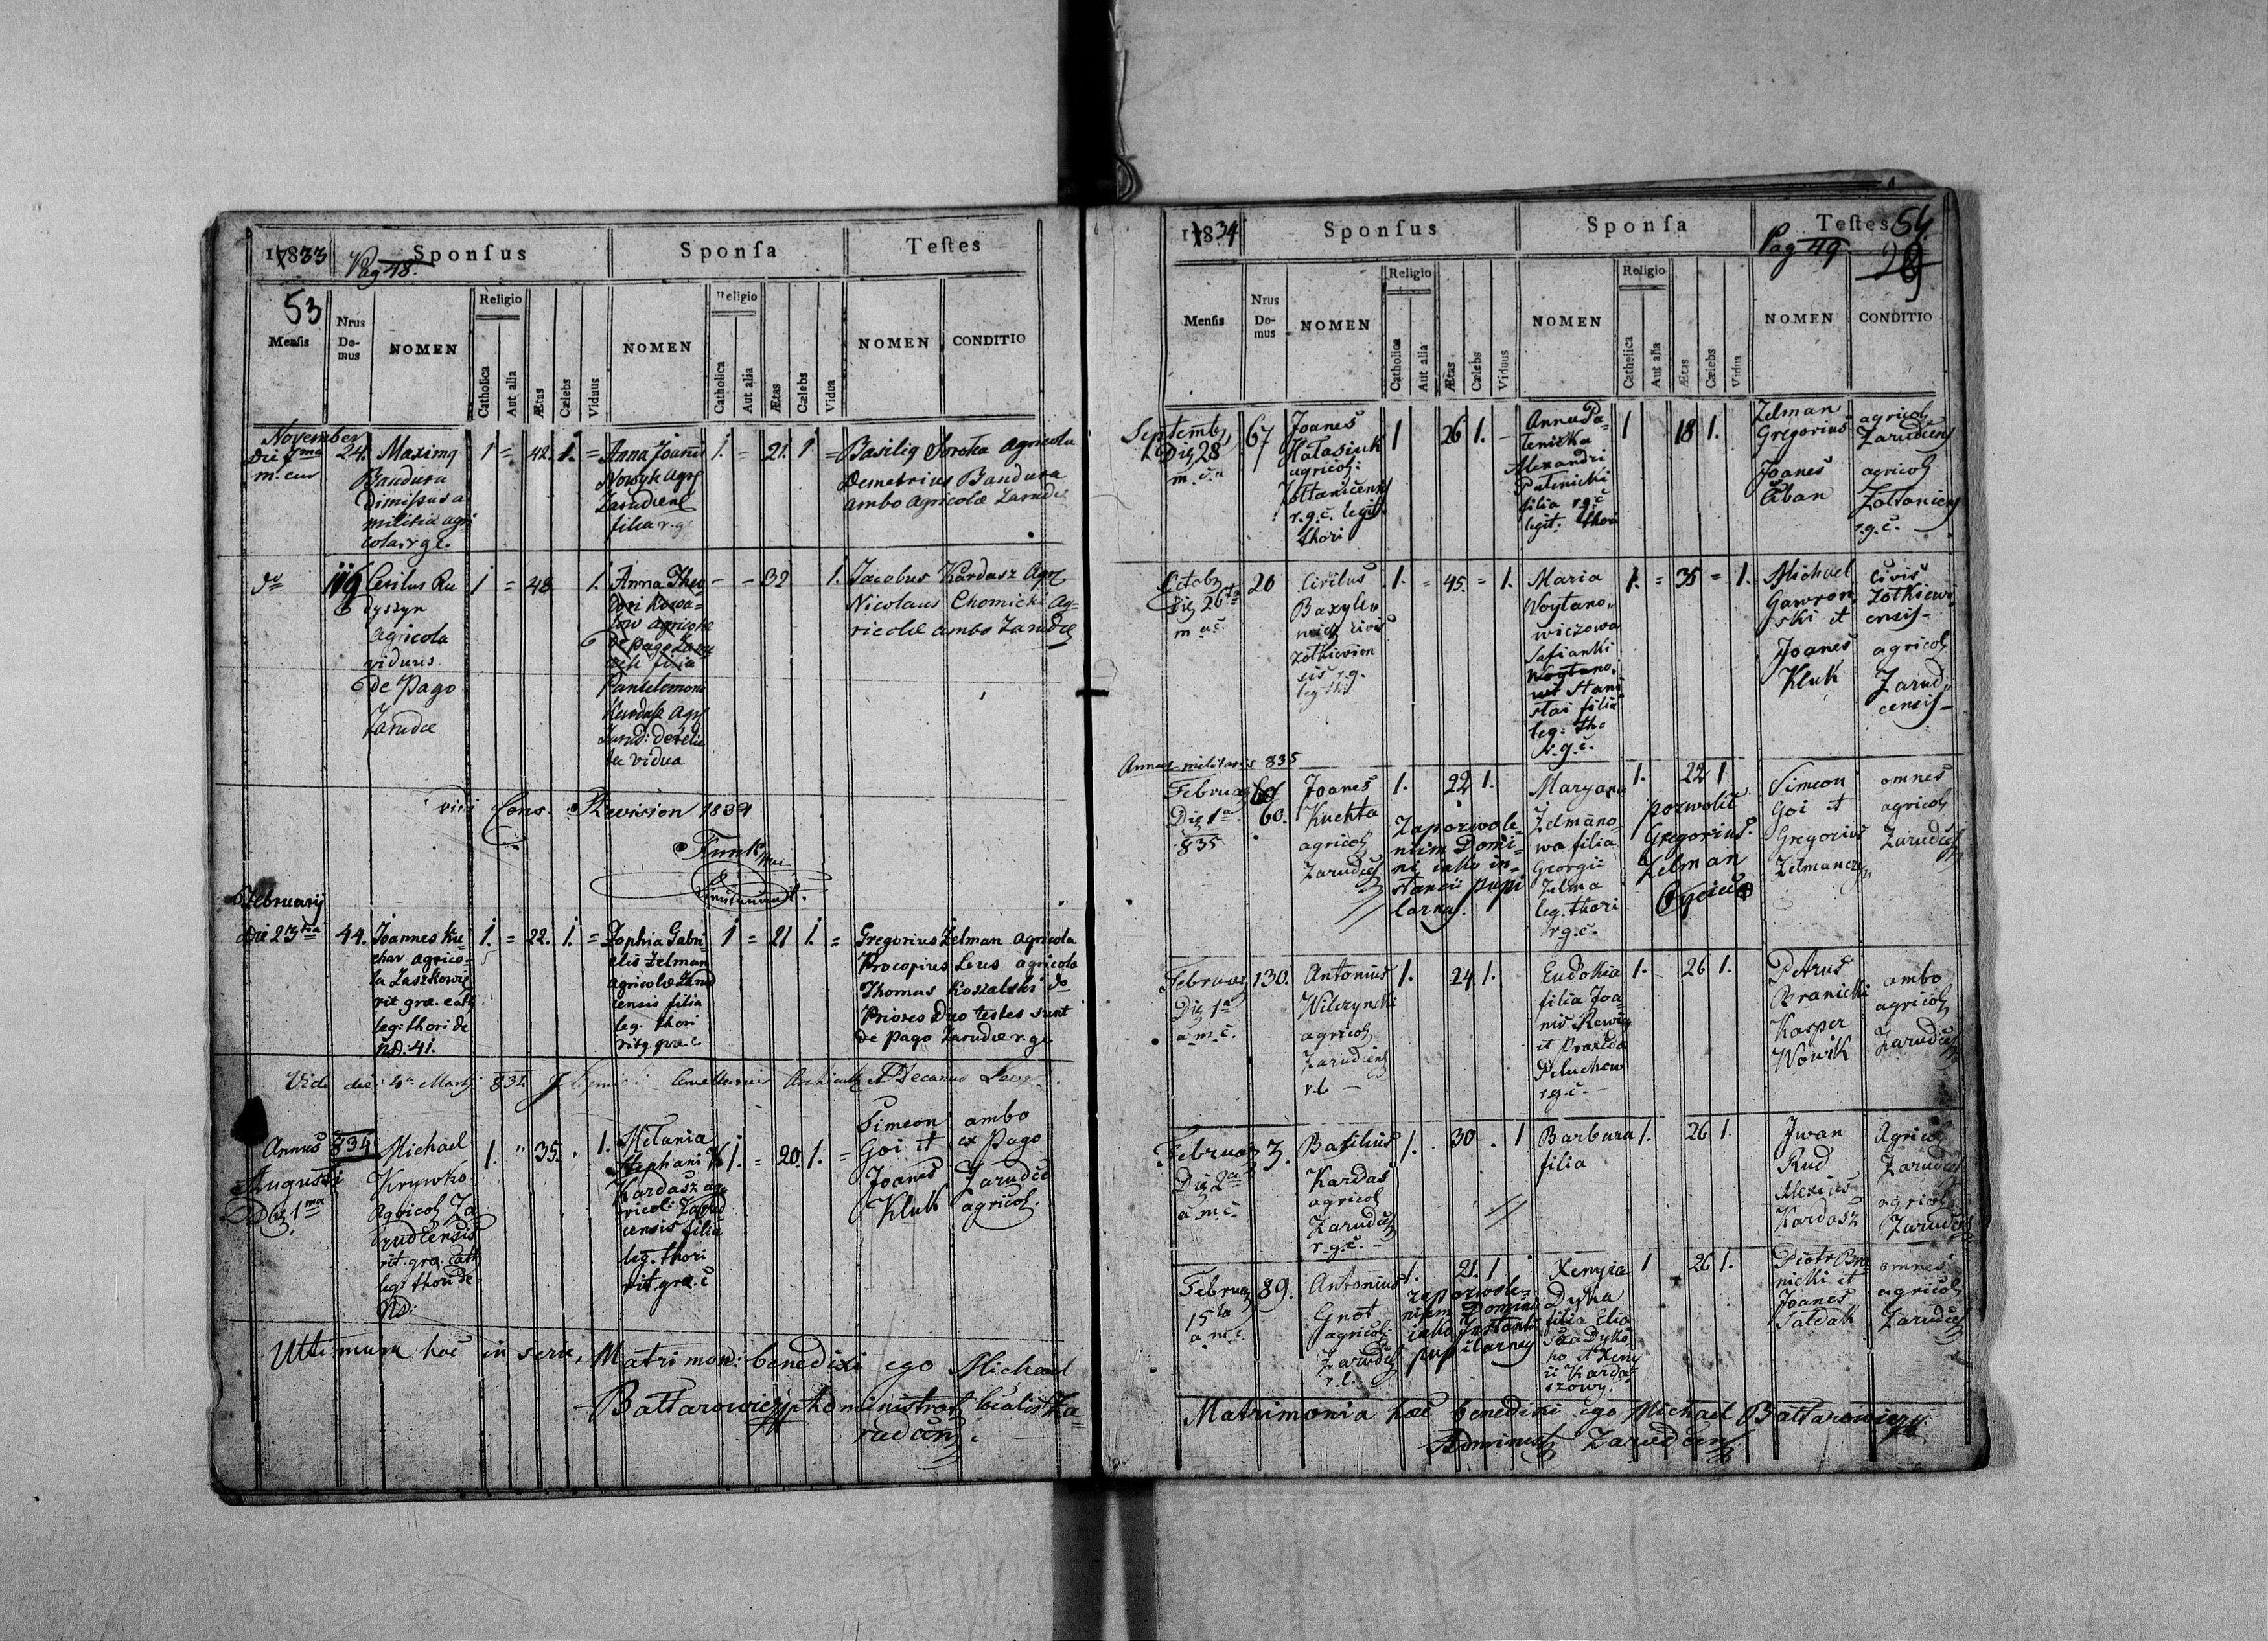 17833
Pag 48.
Sponſus
Sponſa
Teſtes
53
Menſis
Nrus Do-mus
NOMEN
Religio
Catholica
Aut alia
Ætas
Cælebs
Viduus
NOMEN
Religio
Catholica
Aut alia
Ætas
Cælebs
Vidua
NOMEN
CONDITIO
November
Die 7ma
m. cur
24.
Maximq
Bandura
Dimissus a
militia agri
cola r g c.
1 = 42. 1. =
Anna Joannis
Nowyk Agr
Zarudiens
filia r. g
1. = 21. 1. =
Basiliq Soroka Agricola
Demetrius Bandura
ambo Agricolæ Zarudc
do
119
Cerilus Ru
dyszyn
agricola
viduus
de Pago
Zarudce
1 = 48 1.
Anna Theo
dori Kowa-
low agricolæ
de pago Zaru
dce filia
Pantelemoni
Kardasz Agr
Zarud: derelic
ta vidua
- - 32 1.
Jacobus Kardasz Agr
Nicolaus Chomicki Ag-
ricolæ ambo Zarudce
vidi Cons. Revision 1834
Februarij
Die 23tia
44.
Joannes Ku-
char agrico-
la Laszkowie
rit græ. cath
leg: thori de
No. 41.
1. = 22. 1. =
Zophia Gabri-
elis Zelman
agricolæ Zarud
censis filia
leg. thori
ritg. græ c
1 = 21 1. =
Gregorius Zelman agricola
Procopius Seus agricola
Thomas Koszalski do
Priores duo testes sunt
de pago Zarudce r. gc
Vidi die 4a Martij 834
Decanus
Annus 834
Augusti
Die 1ma
Michael
Krywko
Agricol Za
rudcensis
rit. græ. cath
leg: thori de
No:
1. " 35. " 1.
Melania
Stephani K
Kardasz ag
ricol: Zarud
censis filia
leg. thori
rit. græ. c
1. = 20. 1. =
Simeon
Goi et
Joanes
Kluk
ambo
ex Pago
Zarudce
agricol.
Ultimum hoc in serie, Matrimon: benedixi ego Michael
Battarowicz Administrat localis Za-
rudcens.
17834
Sponſus
Sponſa
Teſtes
54.
Pag 49
28
Menſis
Nrus Do-mus
NOMEN
Religio
Catholica
Aut alia
Ætas
Cælebs
Viduus
NOMEN
Religio
Catholica
Aut alia
Ætas
Cælebs
Vidua
NOMEN
CONDITIO
Septemb
Die 28
m. c. a
67
Joanes
Hałasiuk
agricol:
Zołtanicens
r. g. c. legit
thori
1 26 1. -
Anna Pa-
tenicka
Alexandri
Patenicki
filia r g c
legit. thori
1 18 1.
Zelman
Gregorius
Joanes
Baban
agricol
Zarudcens
agricol
Zoltaniens
r. g. c.
Octobr
Die 26ta
m a c.
20
Cirilus
Bazyle
wicz civis
Zolkievien
sis r. g.
leg tho
1. = 45. = 1.
Maria
Woytano
wiczowa
Safianki
Woytano
wicz Stani
slai filia
leg: tho
r. g. c.
1. = 35 = 1.
Michael
Gawron
ski et
Joanes
Kluk
civis
Zolkiewi
ensis -
agricol
Zarud
censis -
Annus militaris 835
Februar
Die 1a
835
60.
Joanes
Kuchta
agricol
Zarudce
1. 22 1.
Za pozwole-
niem Domi-
ni jako in-
stancii pupi
larney.
Maryana
Zelmano-
wa filia
Georgii
Zelma
leg. thori
r g. c.
1. 22 1
pozwolit
Gregorius
Zelman
Oyciec
Simeon
Goi et
Gregorius
Zelman
omnes
agricol
Zarudce
Februar
Die 1a
a. m. c.
130.
Antonius
Wilczynski
agricol
Zarudiens
r. l. -
1. 24 1.
Eudokia
filia Joa-
nis Rewig
et Praxeda
Peluchow
r g c -
1. 26 1.
Petrus
Branicki
Kasper
Nowik
ambo
agricol
Zarudce
Februar
Die 2a
a. m. c.
3.
Basilius
Kardas
agricol
Zarudce
r. g. c. -
1. 30 . 1
Barbara
filia
1. 26 1.
Jwan
Rud
Alexius
Kardasz
Agricol
Zarudce
agricol
Zarudce
Februar
15ta
a m. c.
89.
Antonius
Gnot
agricol:
Zarudce
r. l.
1. 21. 1
za pozwole-
niem Domini
jako Jnstantii
pupilarney
Xenyia
Dyka
filia Elia
sza Dyko
ho et Xeny
ii Karda
szowy.
1 26 1.
Piotr Bra
nicki et
Joanes
Sałdak
omnes
agricol
Zarudce
Matrimonia hæc benedixi ego Michael Battarowicz
Administ Zarudcens